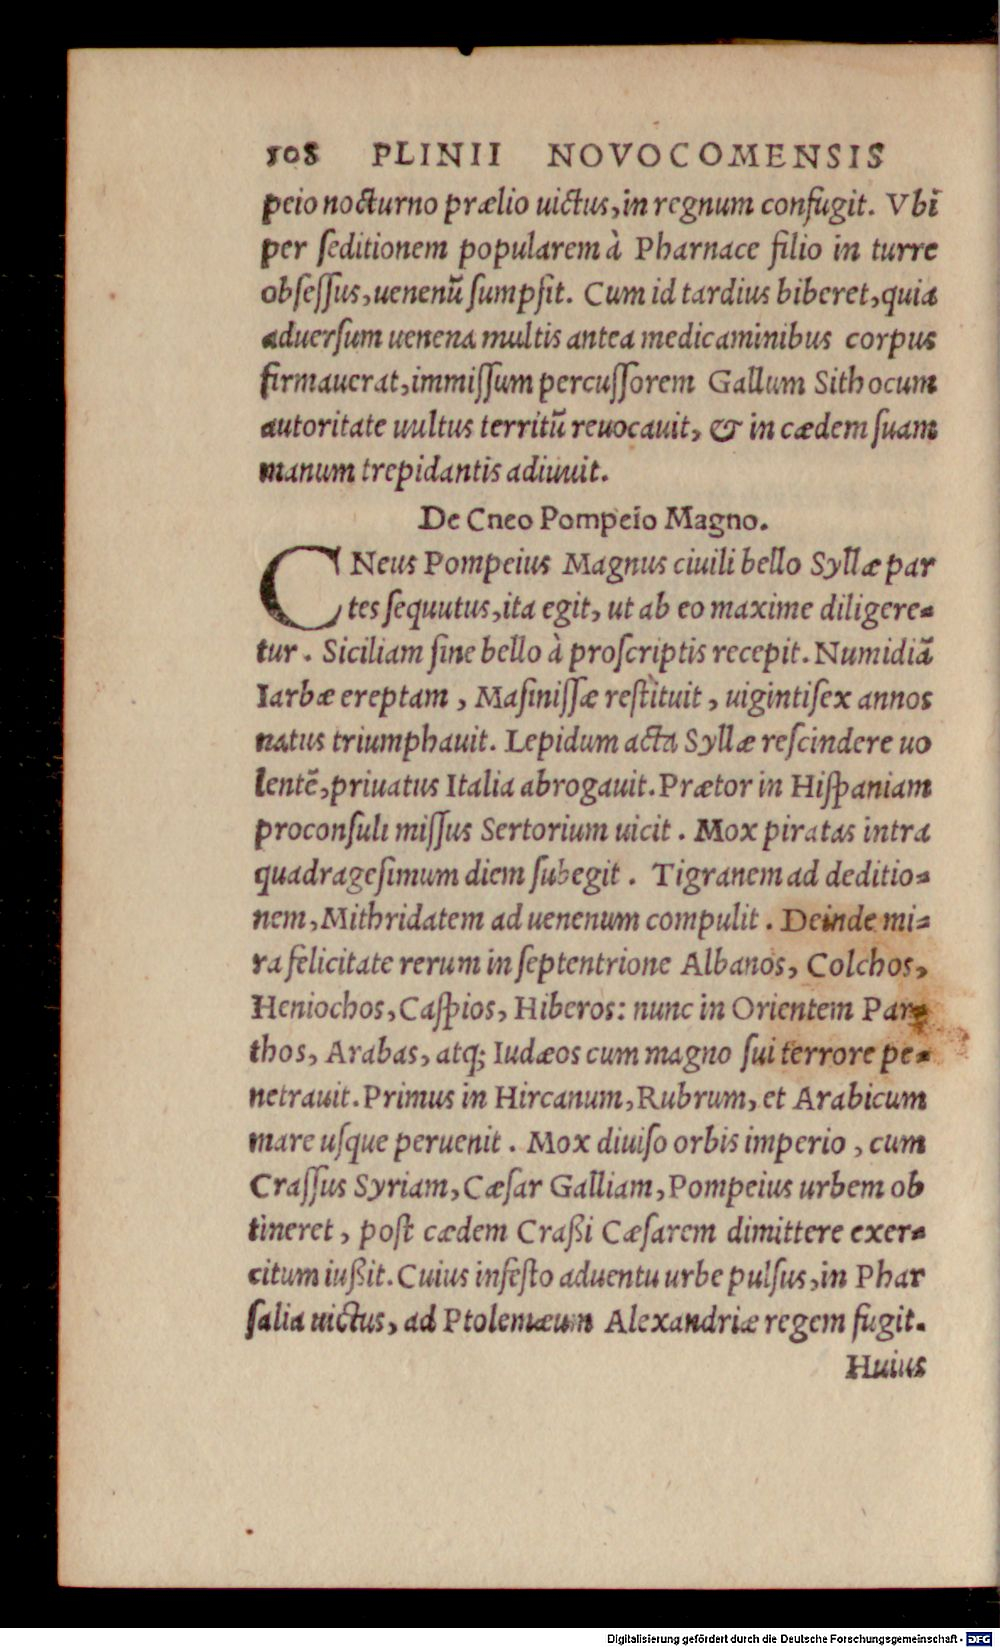 508 PLINII NOVOCOMENSIS
peio nocturno prælio uictus, in regnum confugit. Vbi
per ſeditionem popularem à Pharnace filio in turre
obſeſſus, uenenũ ſumpſit. Cum id tardius biberet, quia
aduerſum uenena multis antea medicaminibus corpus
firmauerat, immiſſum percuſſorem Gallum Sithocum
autoritate uultus territũ reuocauit, & in cædem ſuam
manum trepidantis adiuuit.
De Cneo Pompeio Magno.
CNeus Pompeius Magnus ciuili bello Syllæ par
tes ſequutus, ita egit, ut ab eo maxime diligere=
tur. Siciliam ſine bello à proſcriptis recepit. Numidiã
Iarbæ ereptam, Maſiniſſæ reſtituit, uigintiſex annos
natus triumphauit. Lepidum acta Syllæ reſcindere uo
lentẽ, priuatus Italia abrogauit. Prætor in Hiſpaniam
proconſuli miſſus Sertorium uicit. Mox piratas intra
quadrageſimum diem ſubegit. Tigranem ad deditio=
nem, Mithridatem ad uenenum compulit. Deinde mi=
ra felicitate rerum in ſeptentrione Albanos, Colchos,
Heniochos, Caſpios, Hiberos: nunc in Orientem Par=
thos, Arabas, atq; Iudæos cum magno ſui terrore pe=
netrauit. Primus in Hircanum, Rubrum, et Arabicum
mare uſque peruenit. Mox diuiſo orbis imperio, cum
Craſſus Syriam, Cæſar Galliam, Pompeius urbem ob
tineret, poſt cædem Craßi Cæſarem dimittere exer=
citum iußit. Cuius infeſto aduentu urbe pulſus, in Phar
ſalia uictus, ad Ptolemæum Alexandriæ regem fugit.
Huius
Digitalisierung gefördert durch die Deutsche Forschungsgemeinschaft - DFG